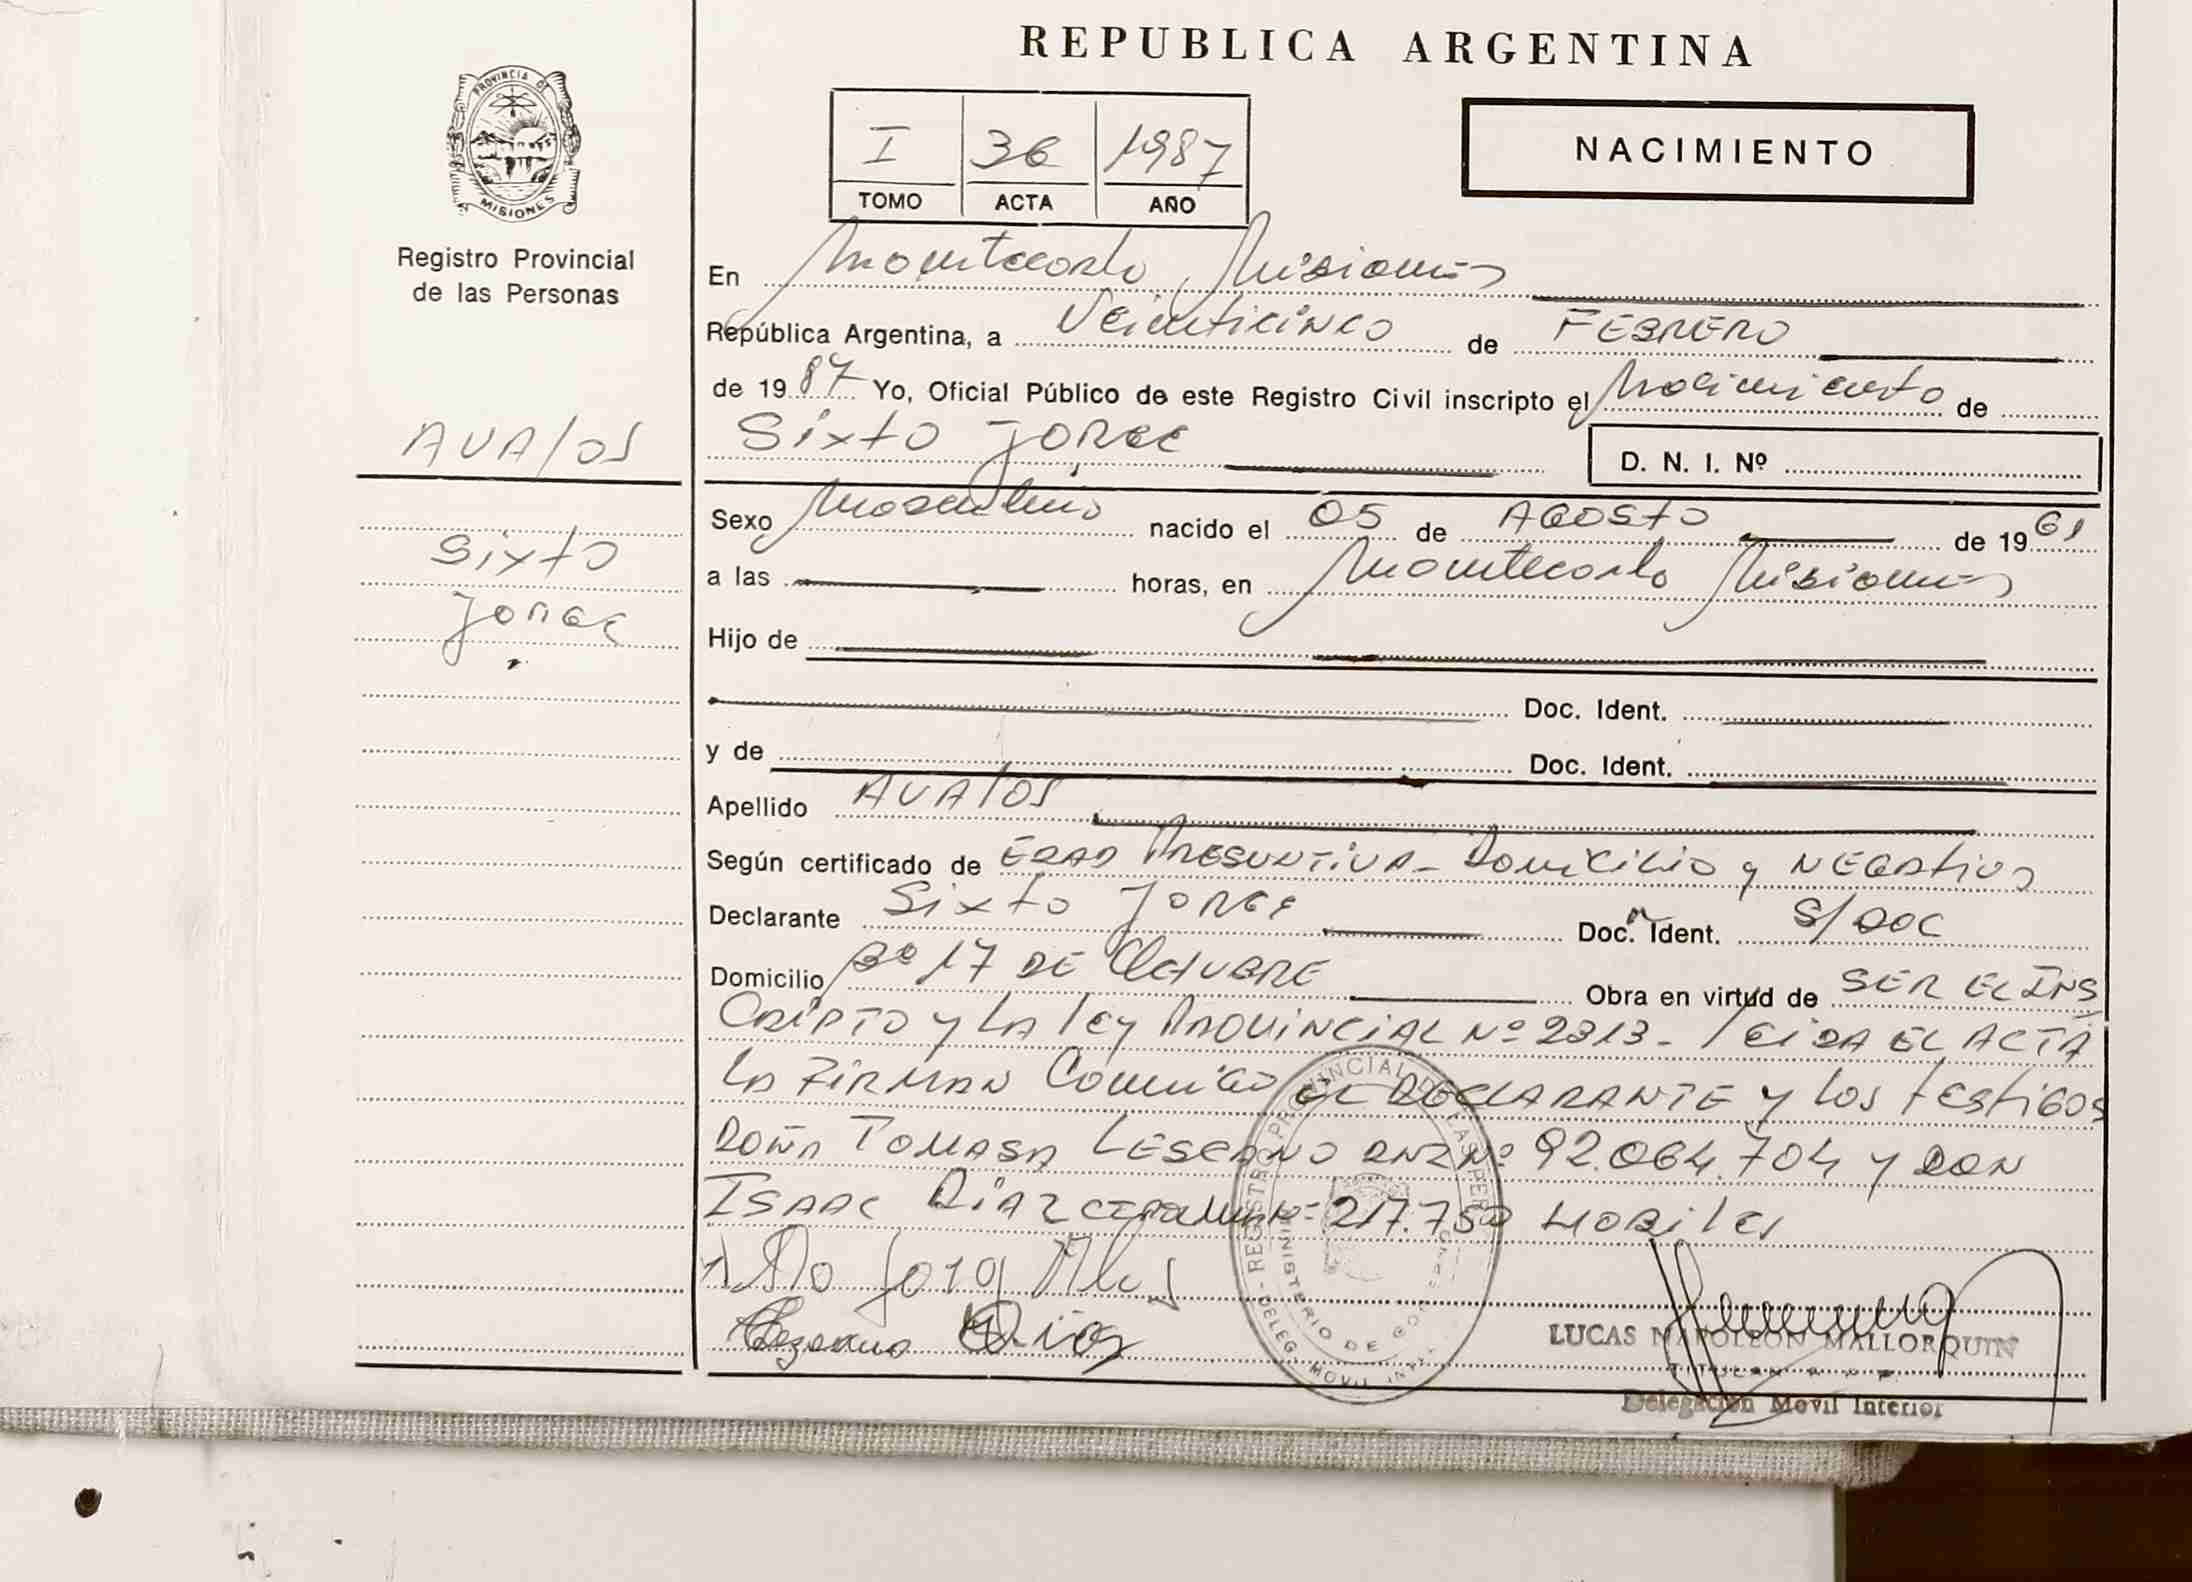 REPUBLICA ARGENTINA
PROVINCIA DE MISIONES
Registro Provincial
de las Personas
I 36 1987
TOMO ACTA AÑO
NACIMIENTO
En Montecarlo, Misiones
República Argentina, a Veinticinco de FEBRERO
de 19 87 Yo, Oficial Público de este Registro Civil inscripto el Nacimiento de
AVAlos
Sixto JORGE
D. N. I. Nº
Sexo Masculino nacido el 05 de AGOSTO de 19 61
Sixto
JORGE
a las horas, en Montecarlo Misiones
Hijo de
Doc. Ident.
y de Doc. Ident.
Apellido AVAlos
Según certificado de EDAD PRESUNTIVA - Domicilio y NEGAtivo
Declarante Sixto JORGE Doc. Ident. S/DOC
Domicilio Bº 17 DE OctUBRE Obra en virtud de SER EL INS
CRIPTO y LA ley PROVINCIAL Nº 2313 - leiDA EL ACTA
LA FIRMAN Conmigo EL DECLARANTE y los tEStiGOS
DOÑA TOMASA LESCANO DNI Nº 92.064.704 y DON
ISAAC DIAZ Nº 217.750 HABiles
Jorg
Dias
REGISTRO PROVINCIAL DE LAS PER
MINISTERIO DE GO
DELEG. MOVIL INT
LUCAS NAPOLEON MALLORQUIN
TITULAR R P P
Delegación Movil Interior